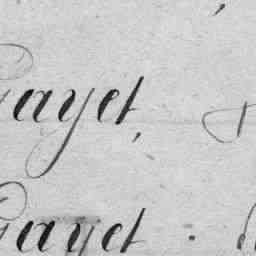 Gayet,
Gayet.